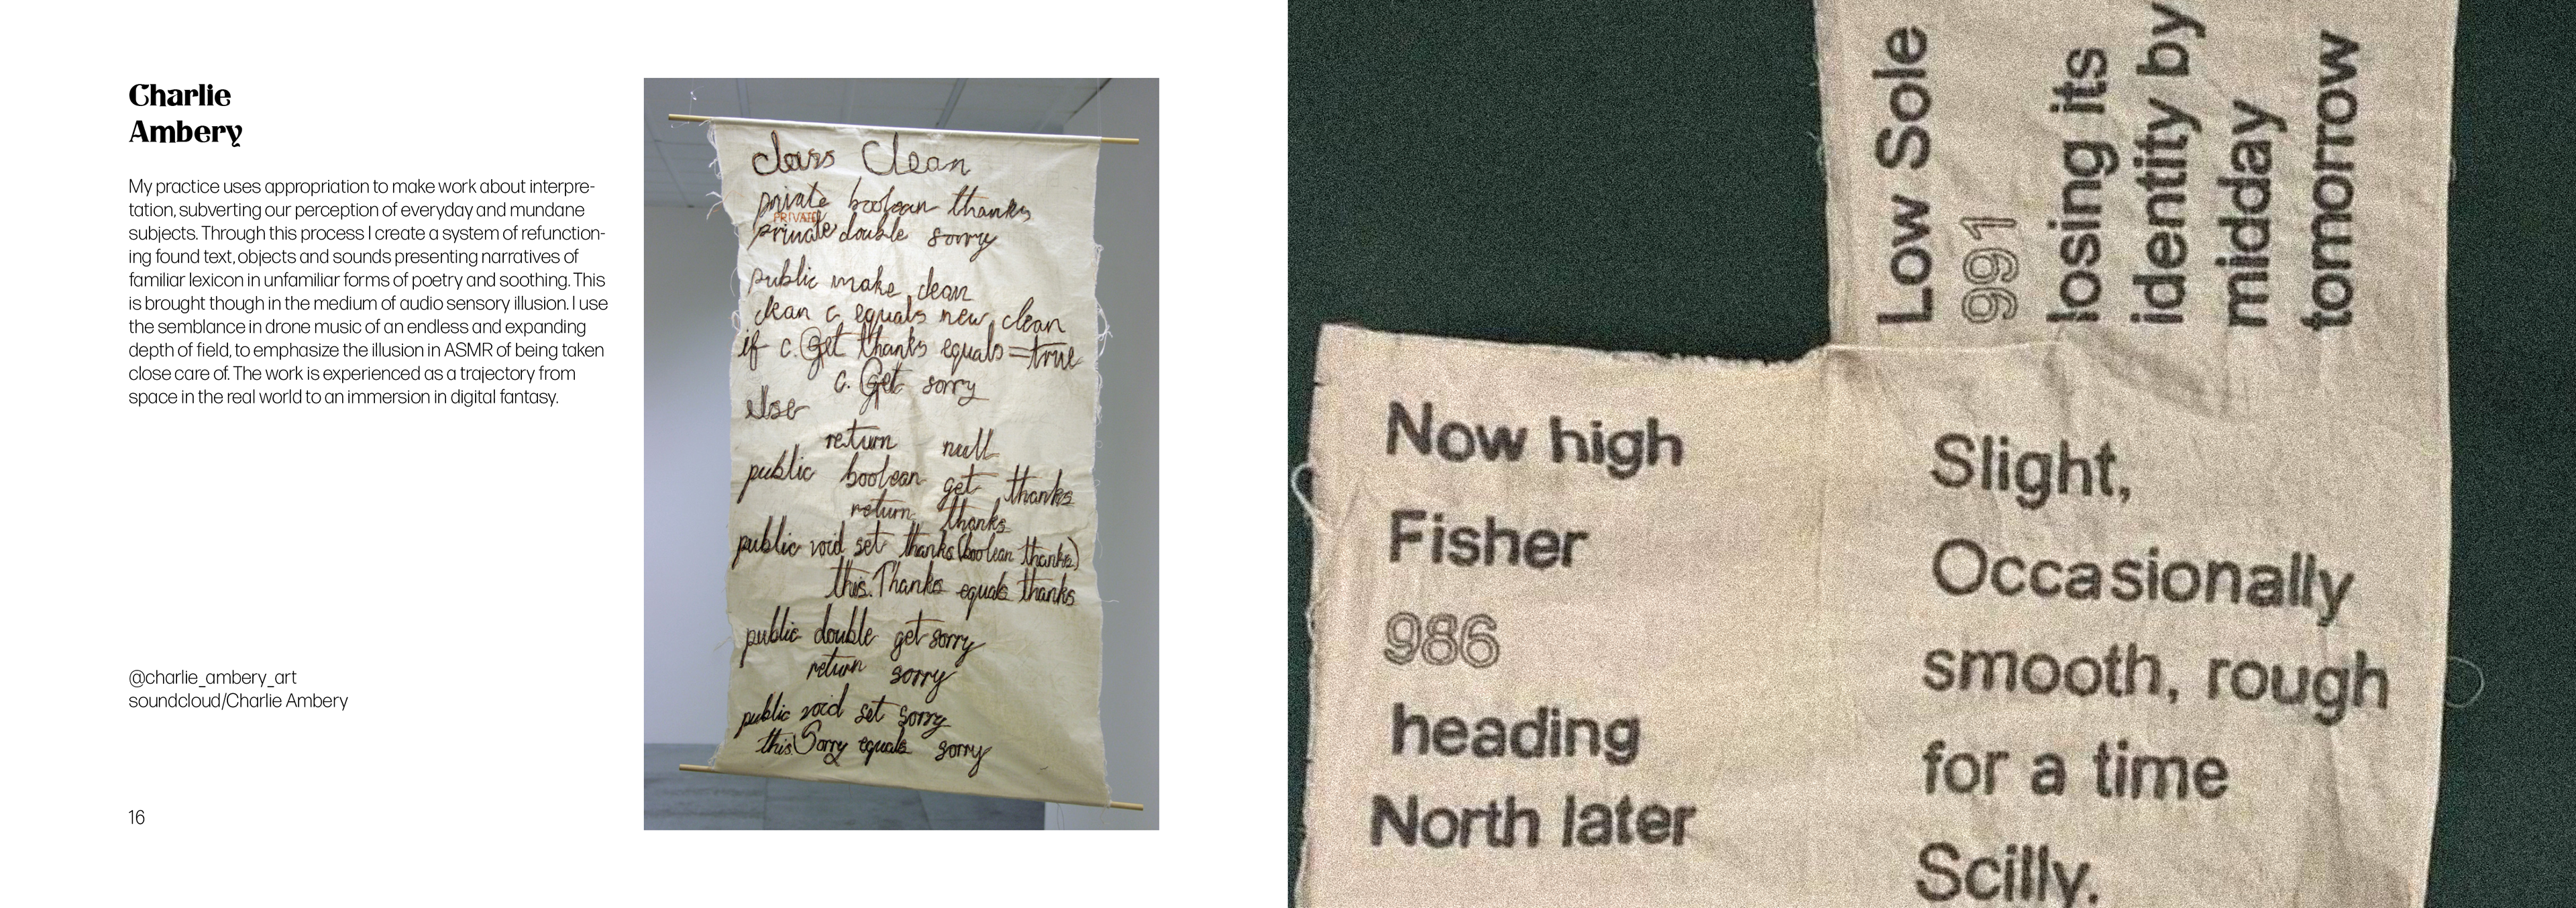 Charlie
Ambery
My practice uses appropriation to make work about interpre-
tation, subverting our perception of everyday and mundane
subjects. Through this process I create a system of refunction-
ing found text, objects and sounds presenting narratives of
familiar lexicon in unfamiliar forms of poetry and soothing. This
is brought though in the medium of audio sensory illusion. I use
the semblance in drone music of an endless and expanding
depth of field, to emphasize the illusion in ASMR of being taken
close care of. The work is experienced as a trajectory from
space in the real world to an immersion in digital fantasy.
@charlie_ambery_art
soundcloud/Charlie Ambery
16
class Clean
private boolean thanks
PRIVATE
private double sorry
public make clean
clean c equals new clean
if c.Get thanks equals=true
c. Get sorry
else
return null
public boolean get thanks
return thanks
public void set thanks(boolean thanks)
this.Thanks equals thanks
public double get sorry
return sorry
public void set sorry
this.Sorry equals sorry
Low Sole
991
losing its
identity by
midday
tomorrow
Now high
Fisher
986
heading
North later
Slight,
Occasionally
smooth, rough
for a time
Scilly.